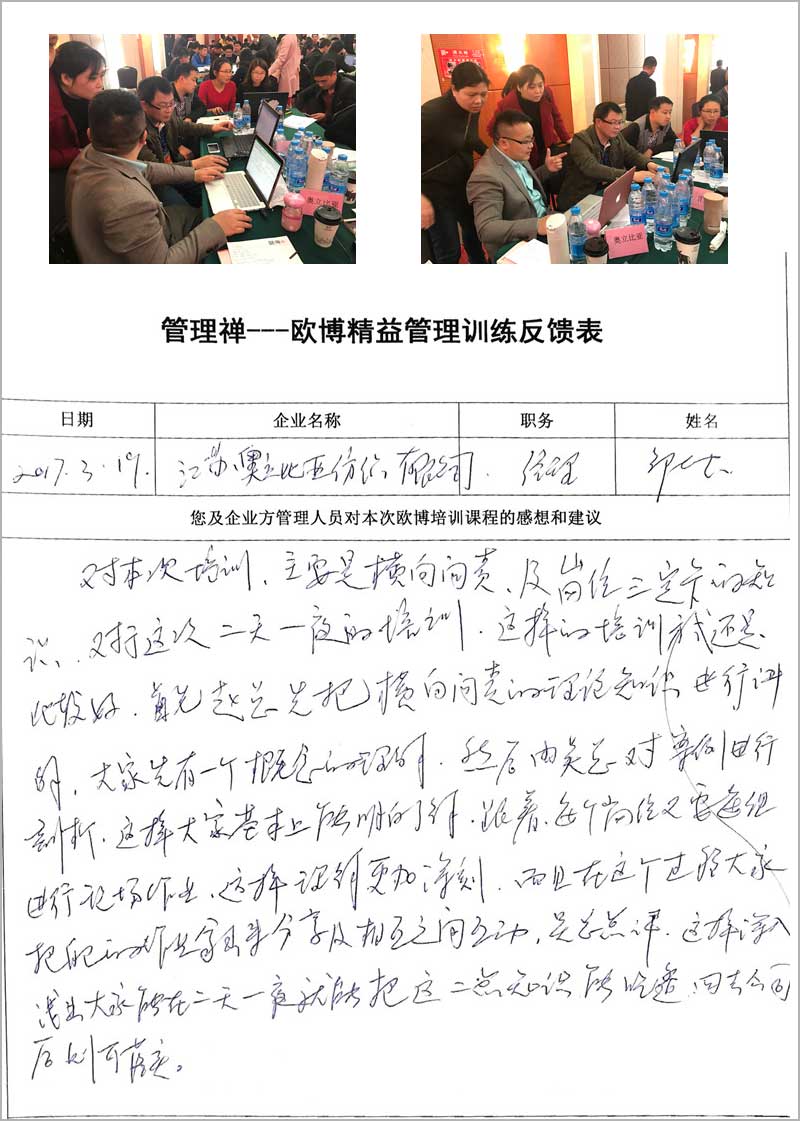 奥立比亚
奥立比亚
管理禅---欧博精益管理训练反馈表
日期 企业名称 职务 姓名
2017.3.19. 江苏奥立比亚纺织有限公司. 经理
您及企业方管理人员对本次欧博培训课程的感想和建议
对本次培训，主要是横向问责、及岗位三定卡的知
识、对于这次二天一夜的培训．这样的培训方式还是
比较好．首先赵总先把横向问责的理论知识进行讲
解，大家先有一个概念的理解．然后由吴总对案例进行
剖析．这样大家基本上能明白了解．跟着每个岗位又要每组
进行现场作业、这样理解更加深刻．而且在这个过程大家
把的作业拿出来分享及相互之间互动，吴总点评．这样深入
浅出大家能在二天一夜就能把这二点知识能吃透．回去公司
后则可落实。